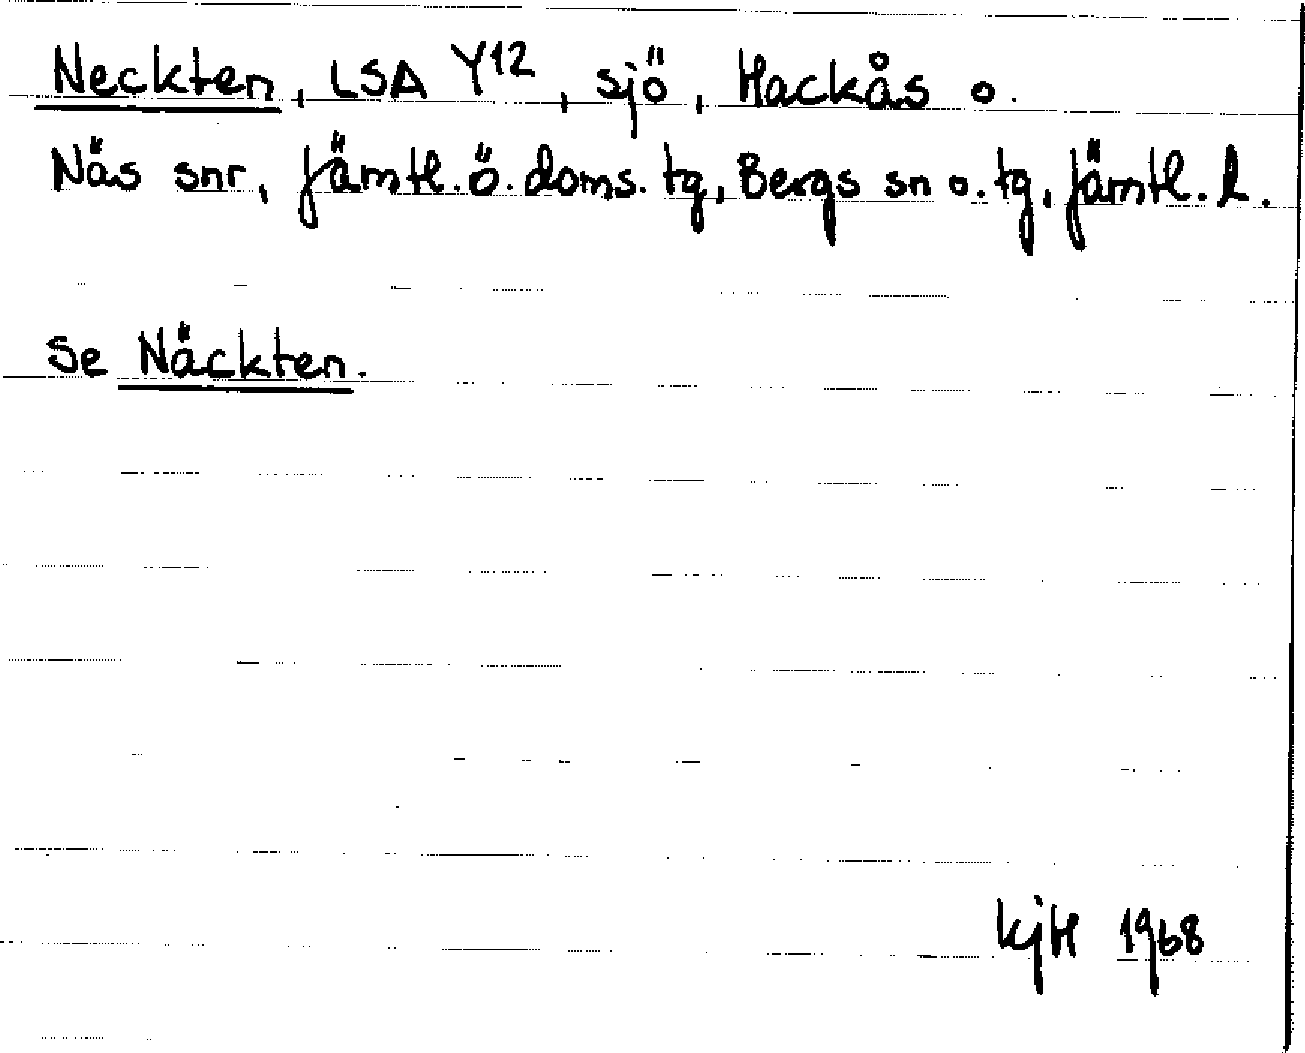 Neckten, LSA Y12, sjö, Hackås o.
Näs snr, Jämtl. ö. doms. tg, Bergs sn o. tg, Jämtl. l.
Se Näckten.
KjH 1968